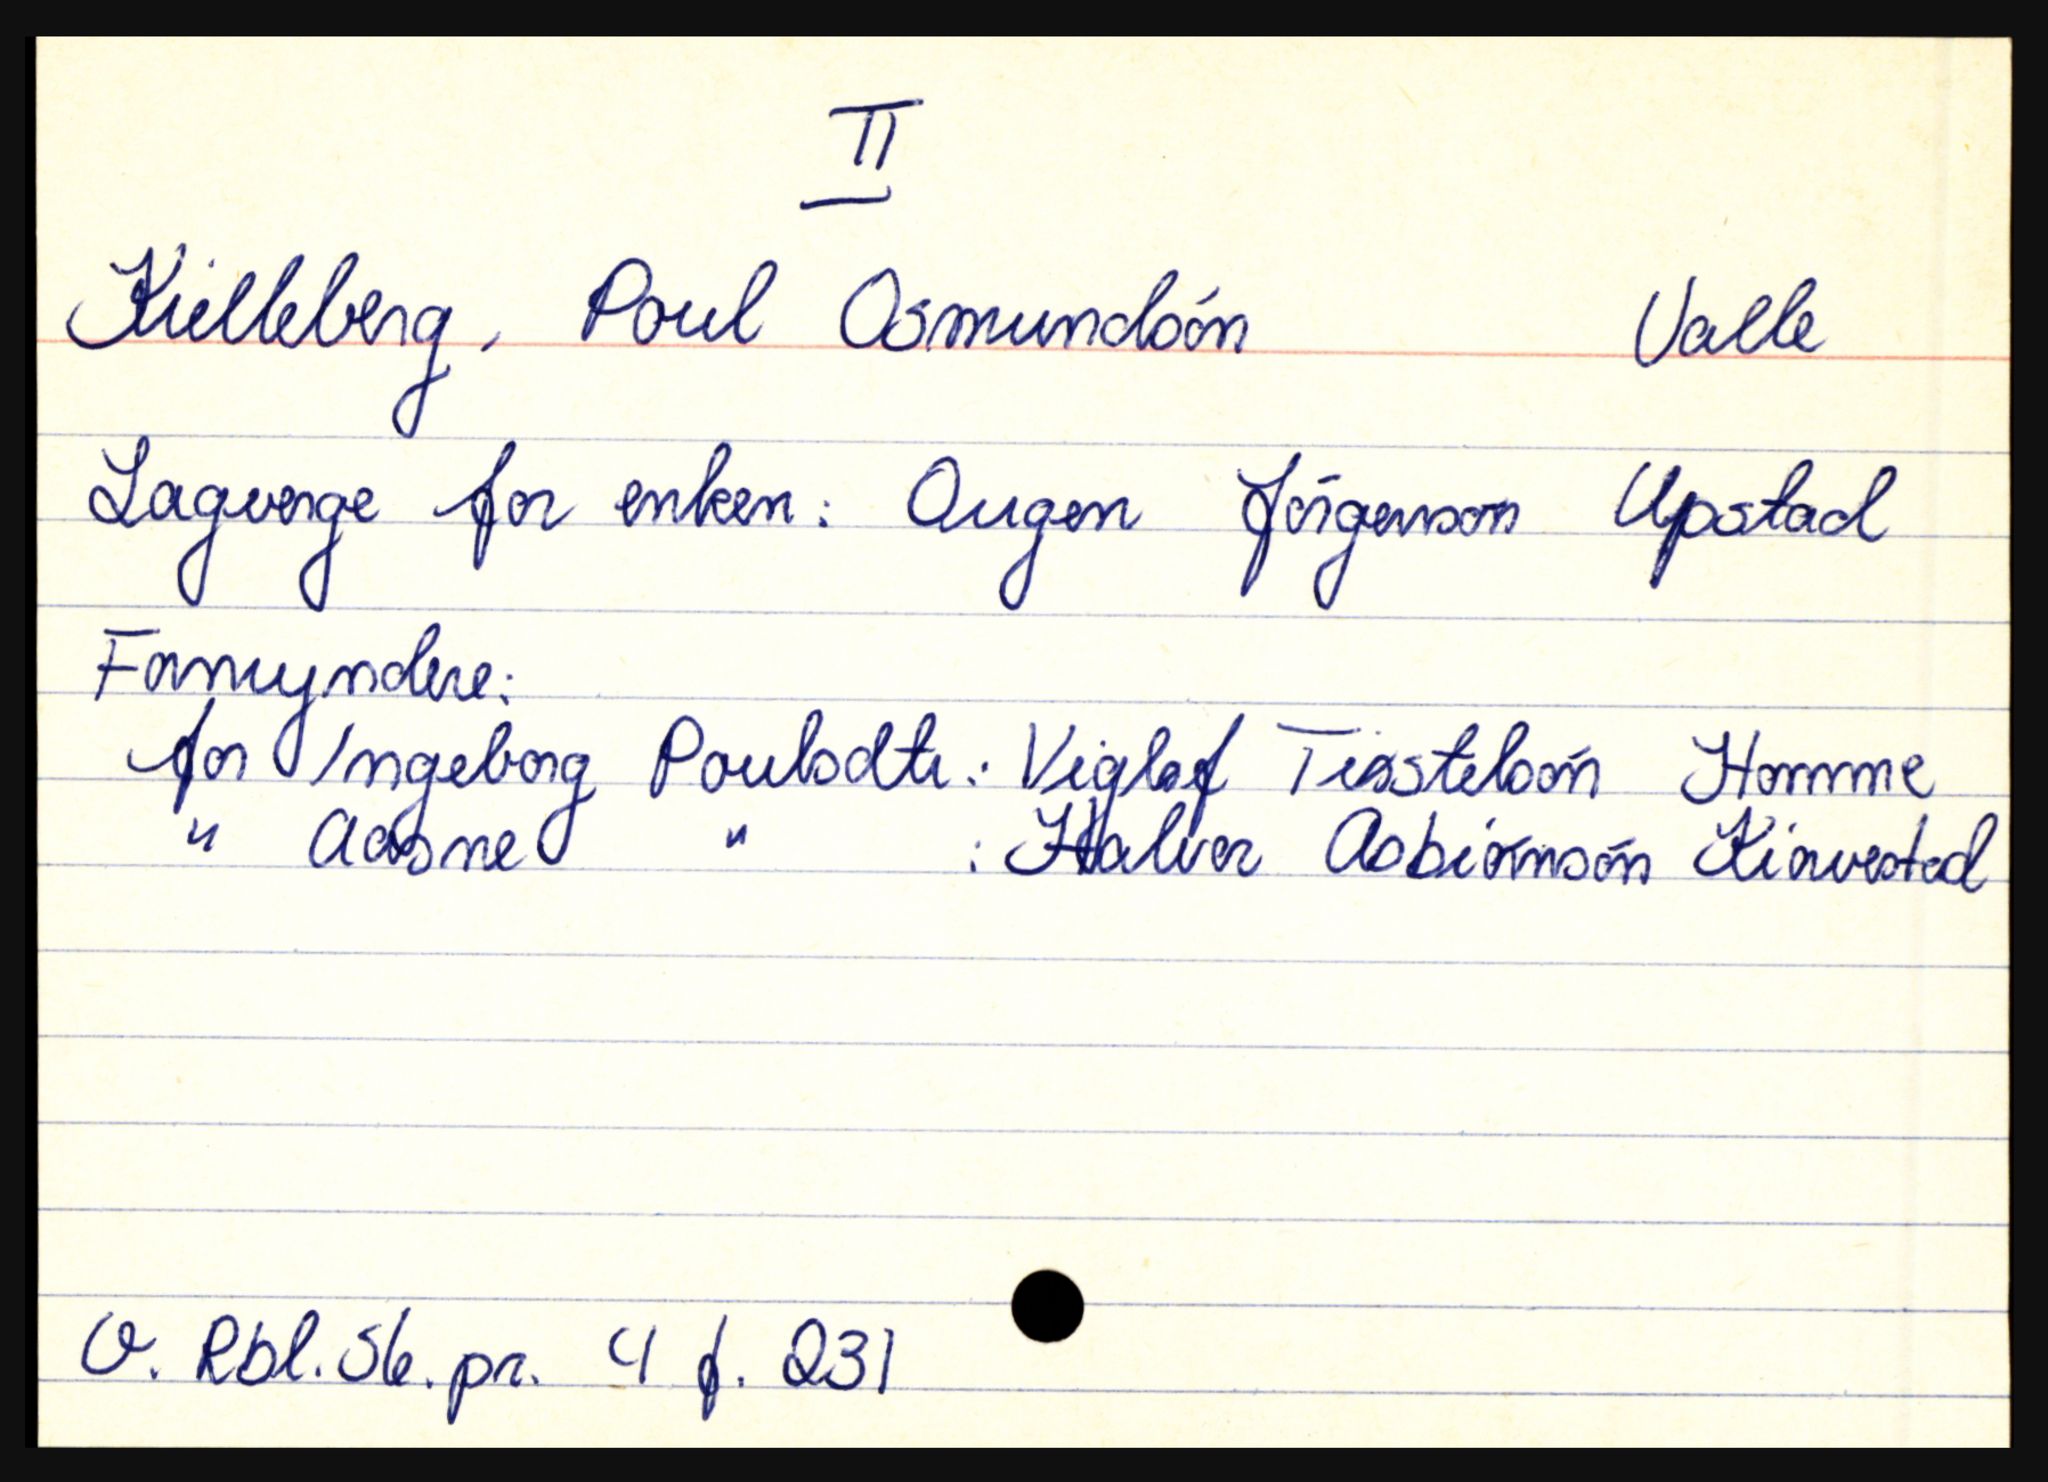 II
Kielleberg, Poul Osmundsón Valle
Lagverge for enken: Ougen Jörgenson Upstad
Formyndere:
for Ingeborg Poulsdtr.: Viglef Tisstelsón Homme
" Aasne " : Halvor Asbiörnsón Kirvestad
V. Rbl. Sk. pr. 4 f. 231